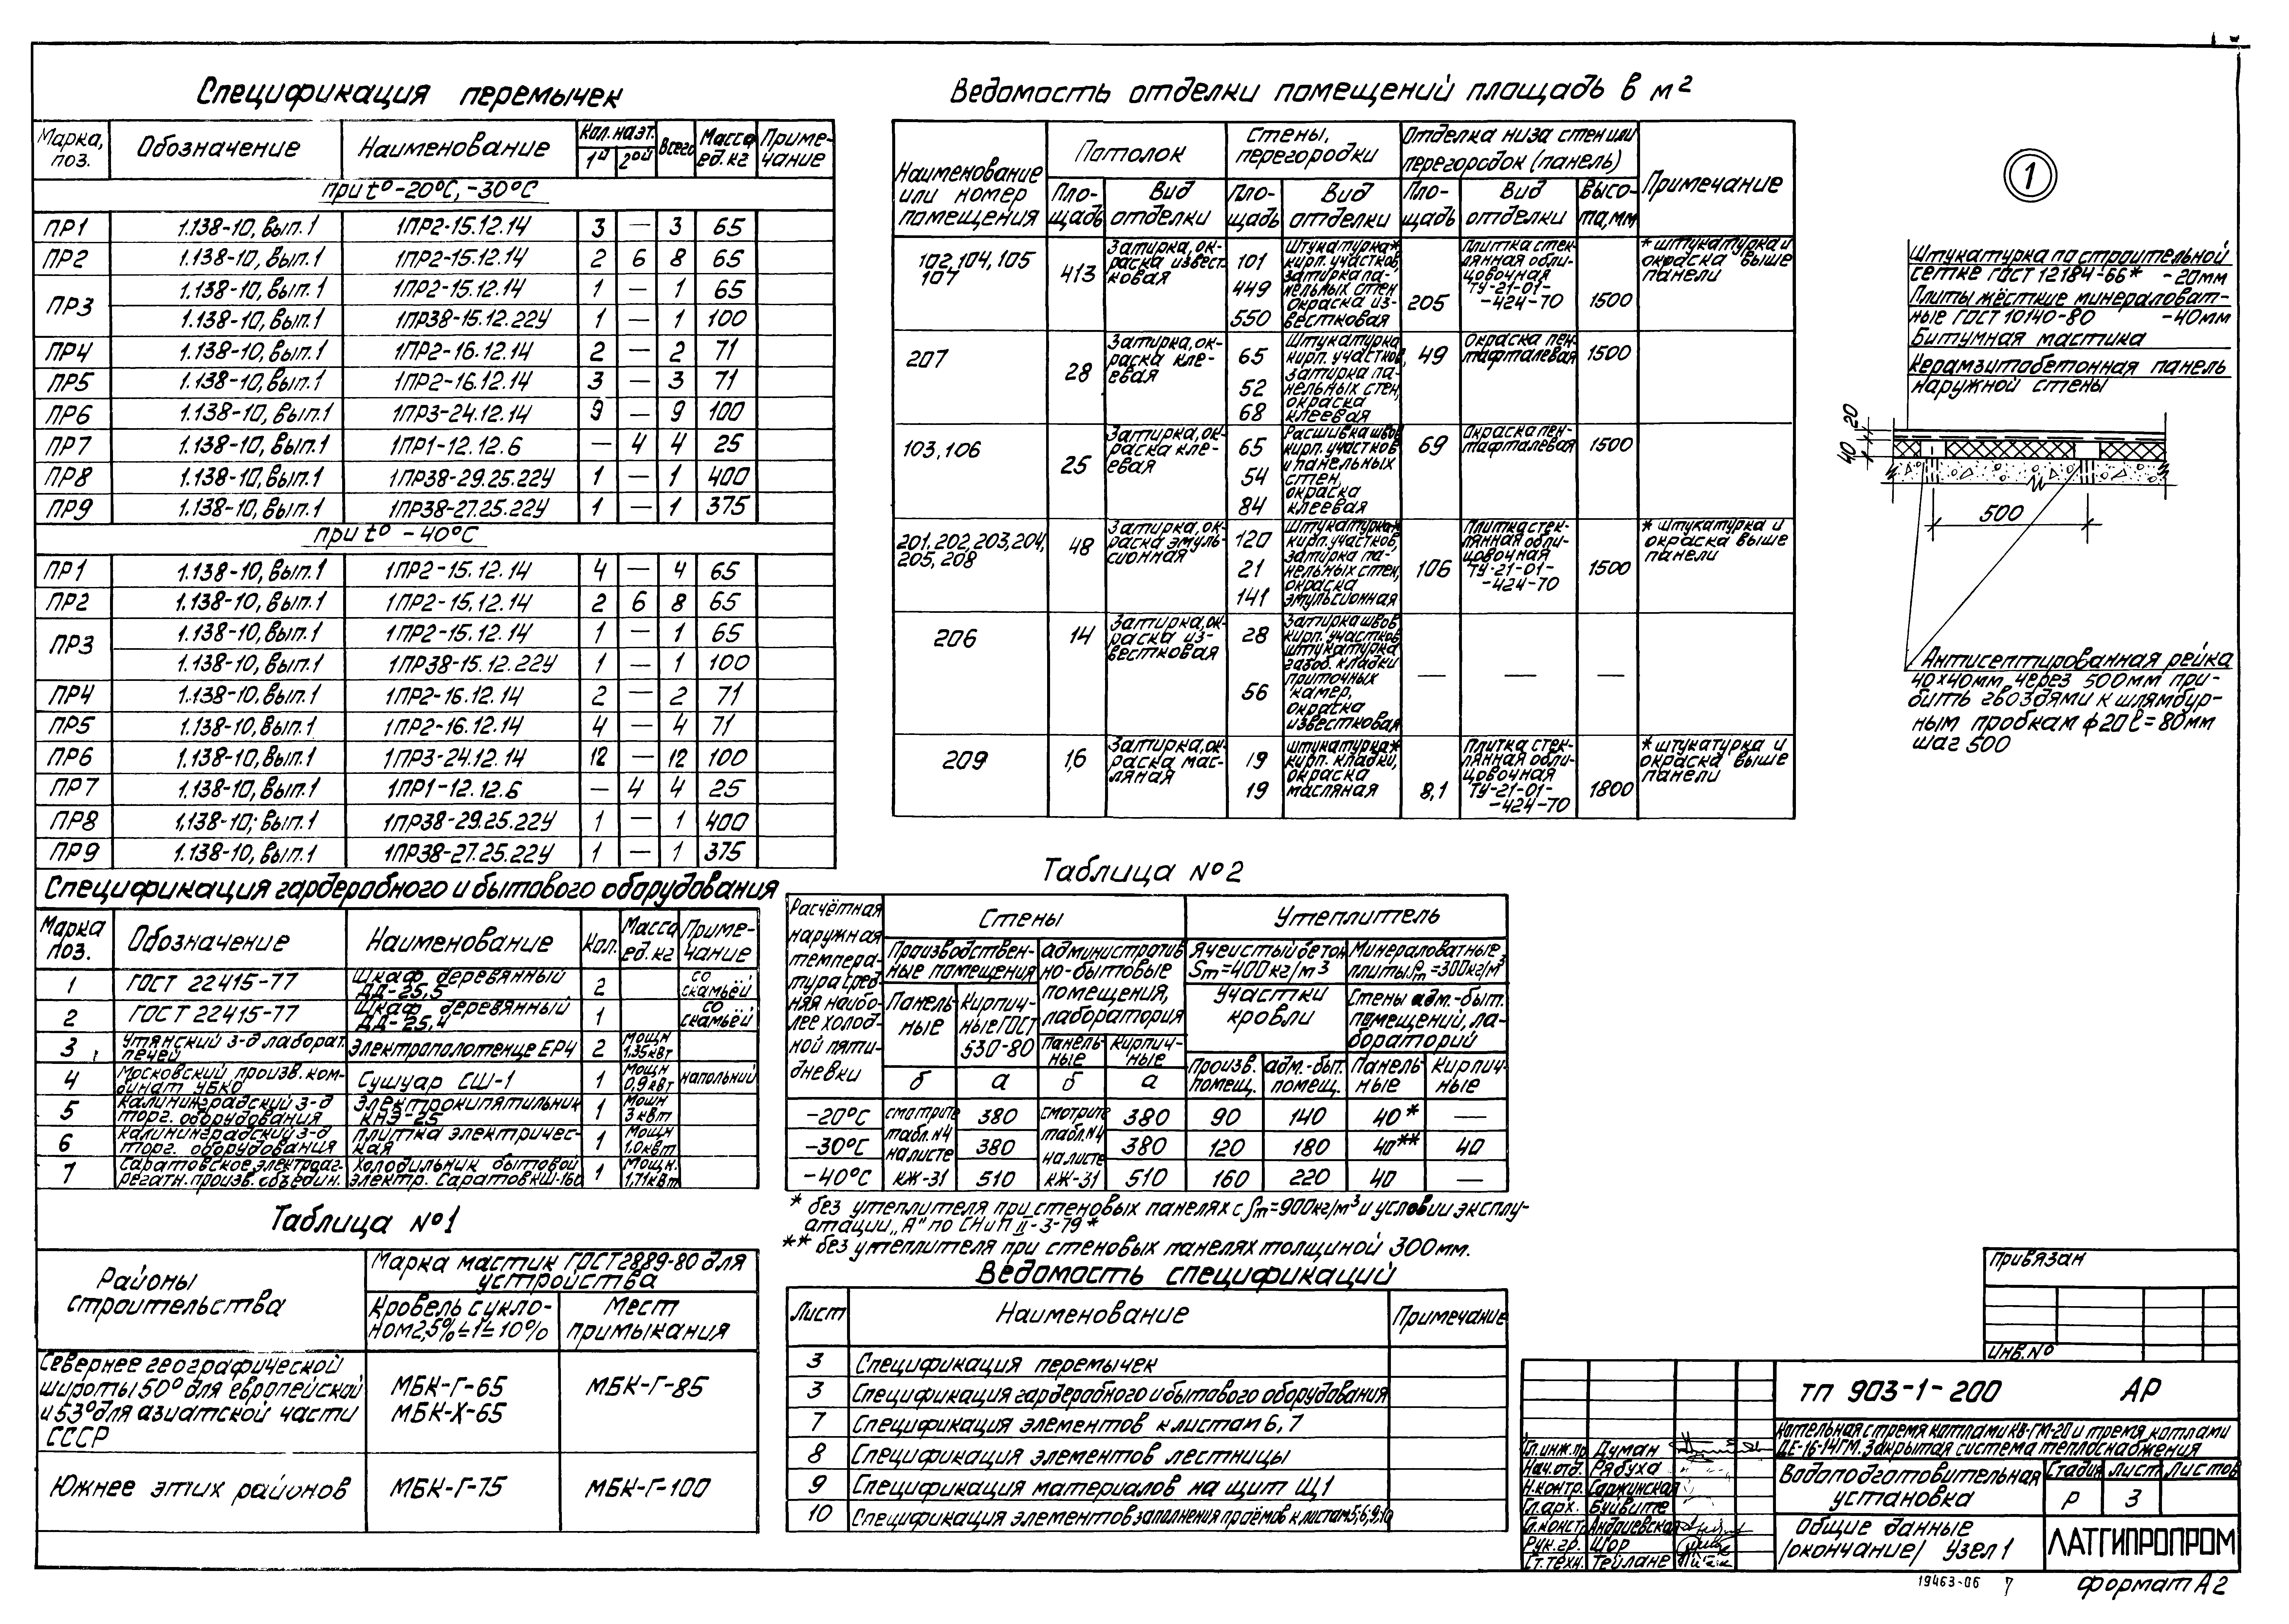 Спецификация перемычек
Марка, поз. Обозначение Наименование Кол. на эт. 1й 2ой Всего Масса ед. кг Приме-чание
при t° -20°С, -30°С
ПР1 1.138-10, вып.1 1ПР2-15.12.14 3 — 3 65
ПР2 1.138-10, вып.1 1ПР2-15.12.14 2 6 8 65
ПР3 1.138-10, вып.1 1ПР2-15.12.14 1 — 1 65
1.138-10, вып.1 1ПР38-15.12.22У 1 — 1 100
ПР4 1.138-10, вып.1 1ПР2-16.12.14 2 — 2 71
ПР5 1.138-10, вып.1 1ПР2-16.12.14 3 — 3 71
ПР6 1.138-10, вып.1 1ПР3-24.12.14 9 — 9 100
ПР7 1.138-10, вып.1 1ПР1-12.12.6 — 4 4 25
ПР8 1.138-10, вып.1 1ПР38-29.25.22У 1 — 1 400
ПР9 1.138-10, вып.1 1ПР38-27.25.22У 1 — 1 375
при t° -40°С
ПР1 1.138-10, вып.1 1ПР2-15.12.14 4 — 4 65
ПР2 1.138-10, вып.1 1ПР2-15.12.14 2 6 8 65
ПР3 1.138-10, вып.1 1ПР2-15.12.14 1 — 1 65
1.138-10, вып.1 1ПР38-15.12.22У 1 — 1 100
ПР4 1.138-10, вып.1 1ПР2-16.12.14 2 — 2 71
ПР5 1.138-10, вып.1 1ПР2-16.12.14 4 — 4 71
ПР6 1.138-10, вып.1 1ПР3-24.12.14 12 — 12 100
ПР7 1.138-10, вып.1 1ПР1-12.12.6 — 4 4 25
ПР8 1.138-10, вып.1 1ПР38-29.25.22У 1 — 1 400
ПР9 1.138-10, вып.1 1ПР38-27.25.22У 1 — 1 375
Спецификация гардеробного и бытового оборудования
Марка поз. Обозначение Наименование Кол. Масса ед. кг Приме-чание
1 ГОСТ 22415-77 Шкаф деревянный ДД-25,5 2 со скамьёй
2 ГОСТ 22415-77 Шкаф деревянный ДД-25,4 1 со скамьёй
3 Утянский з-д лаборат. печей Электрополотенце ЕР4 2 Мощн 1,35кВт
4 Московский произв. ком-бинат УБКО Сушуар СШ-1 1 Мощн 0,9кВт напольный
5 Калининградский з-д торг. оборудования Электрокипятильник КНЭ-25 1 Мощн 3кВт
6 Калининградский з-д торг. оборудования Плитка электричес-кая 1 Мощн 1,0кВт
7 Саратовское электроаг-регатн. произв. объедин. Холодильник бытовой электр. Саратов КШ-160 1 Мощн. 1,71кВт
Таблица №1
Районы строительства
Марка мастик ГОСТ2889-80 для устройства
Кровель с укло-ном 2,5%≤i≤10% Мест примыкания
Севернее географической
широты 50° для европейской МБК-Г-65 МБК-Г-85
и 53° для азиатской части МБК-Х-65
СССР
Южнее этих районов МБК-Г-75 МБК-Г-100
Ведомость отделки помещений площадь в м²
Наименование или номер помещения Потолок Стены, перегородки Отделка низа стен или перегородок (панель) Примечание
Пло-щадь Вид отделки Пло-щадь Вид отделки Пло-щадь Вид отделки Высо-та, мм
102, 104, 105 107 413 Затирка, ок-раска извест-ковая 101 449 550 Штукатурка* кирп. участков, затирка па-нельных стен окраска из-вестковая 205 Плитка стек-лянная обли-цовочная ТУ-21-01--424-70 1500 * штукатурка и окраска выше панели
207 28 Затирка, ок-раска кле-евая 65 52 68 Штукатурка кирп. участков, затирка па-нельных стен, окраска клеевая 49 Окраска пен-тафталевая 1500
103, 106 25 Затирка, ок-раска кле-евая 65 54 84 Расшивка швов кирп. участков и панельных стен, окраска клеевая 69 Окраска пен-тафталевая 1500
201, 202, 203, 204, 205, 208 48 Затирка, ок-раска эмуль-сионная 120 21 141 Штукатурка* кирп. участков, затирка па-нельных стен, окраска эмульсионная 106 Плитка стек-лянная обли-цовочная ТУ-21-01--424-70 1500 * штукатурка и окраска выше панели
206 14 Затирка, ок-раска из-вестковая 28 56 Затирка швов кирп. участков штукатурка газоб. кладки приточных камер, окраска известковая — — —
209 1,6 Затирка, ок-раска мас-ляная 19 19 штукатурка* кирп. кладки, окраска масляная 8,1 Плитка стек-лянная обли-цовочная ТУ-21-01--424-70 1800 * штукатурка и окраска выше панели
Таблица №2
Расчётная наружная темпера-тура сред-няя наибо-лее холод-ной пяти-дневки
Стены Утеплитель
Производствен-ные помещения Административ-но-бытовые помещения, лаборатория Ячеистый бетон ρm=400кг/м3 Минераловатные плиты ρm=300кг/м3
Панель-ные Кирпич-ные ГОСТ 530-80 Панель-ные Кирпич-ные Участки кровли Стены адм.-быт. помещений, ла-бораторий
б а б а Произв. помещ. адм.-быт. помещ. Панель-ные Кирпич-ные
-20°С смотрите 380 смотрите 380 90 140 40* —
-30°С табл.№4 на листе 380 табл.№4 на листе 380 120 180 40** 40
-40°С КЖ-31 510 КЖ-31 510 160 220 40 —
* без утеплителя при стеновых панелях с ρm=900кг/м3 и условии эксплу-
атации „А" по СНиП II-3-79*
** без утеплителя при стеновых панелях толщиной 300мм.
Ведомость спецификаций
Лист Наименование Примечание
3 Спецификация перемычек
3 Спецификация гардеробного и бытового оборудования
7 Спецификация элементов к листам 6, 7
8 Спецификация элементов лестницы
9 Спецификация материалов на щит Щ1
10 Спецификация элементов заполнения проёмов к листам 5,6,9,10
1
Штукатурка по строительной
сетке ГОСТ 12184-66* -20мм
Плиты жёсткие минераловат-
ные ГОСТ 10140-80 -40мм
Битумная мастика
Керамзитобетонная панель
наружной стены
20
40
500
Антисептированная рейка
40х40мм, через 500мм при-
бить гвоздями к шлямбур-
ным пробкам ϕ20 ℓ=80мм
шаг 500
Привязан
Инв.№
ТП 903-1-200 АР
Котельная с тремя котлами КВ-ГМ-20 и тремя котлами
ДЕ-16-14ГМ. Закрытая система теплоснабжения
Гл.инж.пр. Думан
Нач.отд. Рябуха
Н.контр. Саржинская
Гл.арх. Буйвите
Гл.констр. Андриевская
Рук.гр. Шор
Ст.техн. Тейлане
Водоподготовительная установка
Стадия Лист Листов
Р 3
Общие данные
/окончание/ Узел 1
ЛАТГИПРОПРОМ
19463-06 7
формат А2